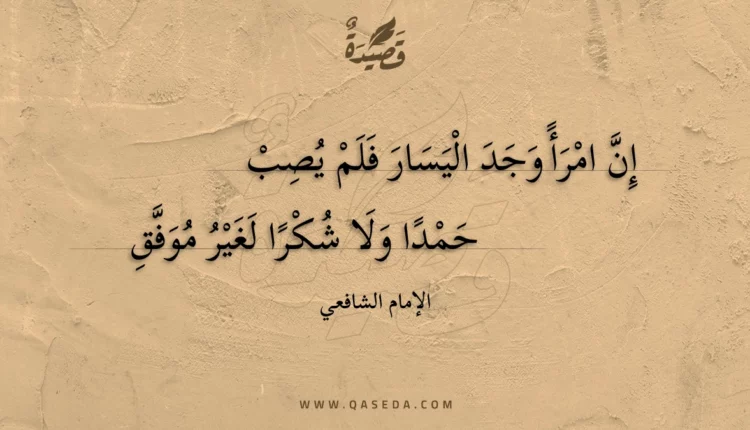 قَصِيْدَةٌ
إِنَّ امْرَأً وَجَدَ الْيَسَارَ فَلَمْ يُصِبْ
حَمْدًا وَلَا شُكْرًا لَغَيْرُ مُوَفَّقِ
الإمام الشافعي
WWW.QASEDA.COM